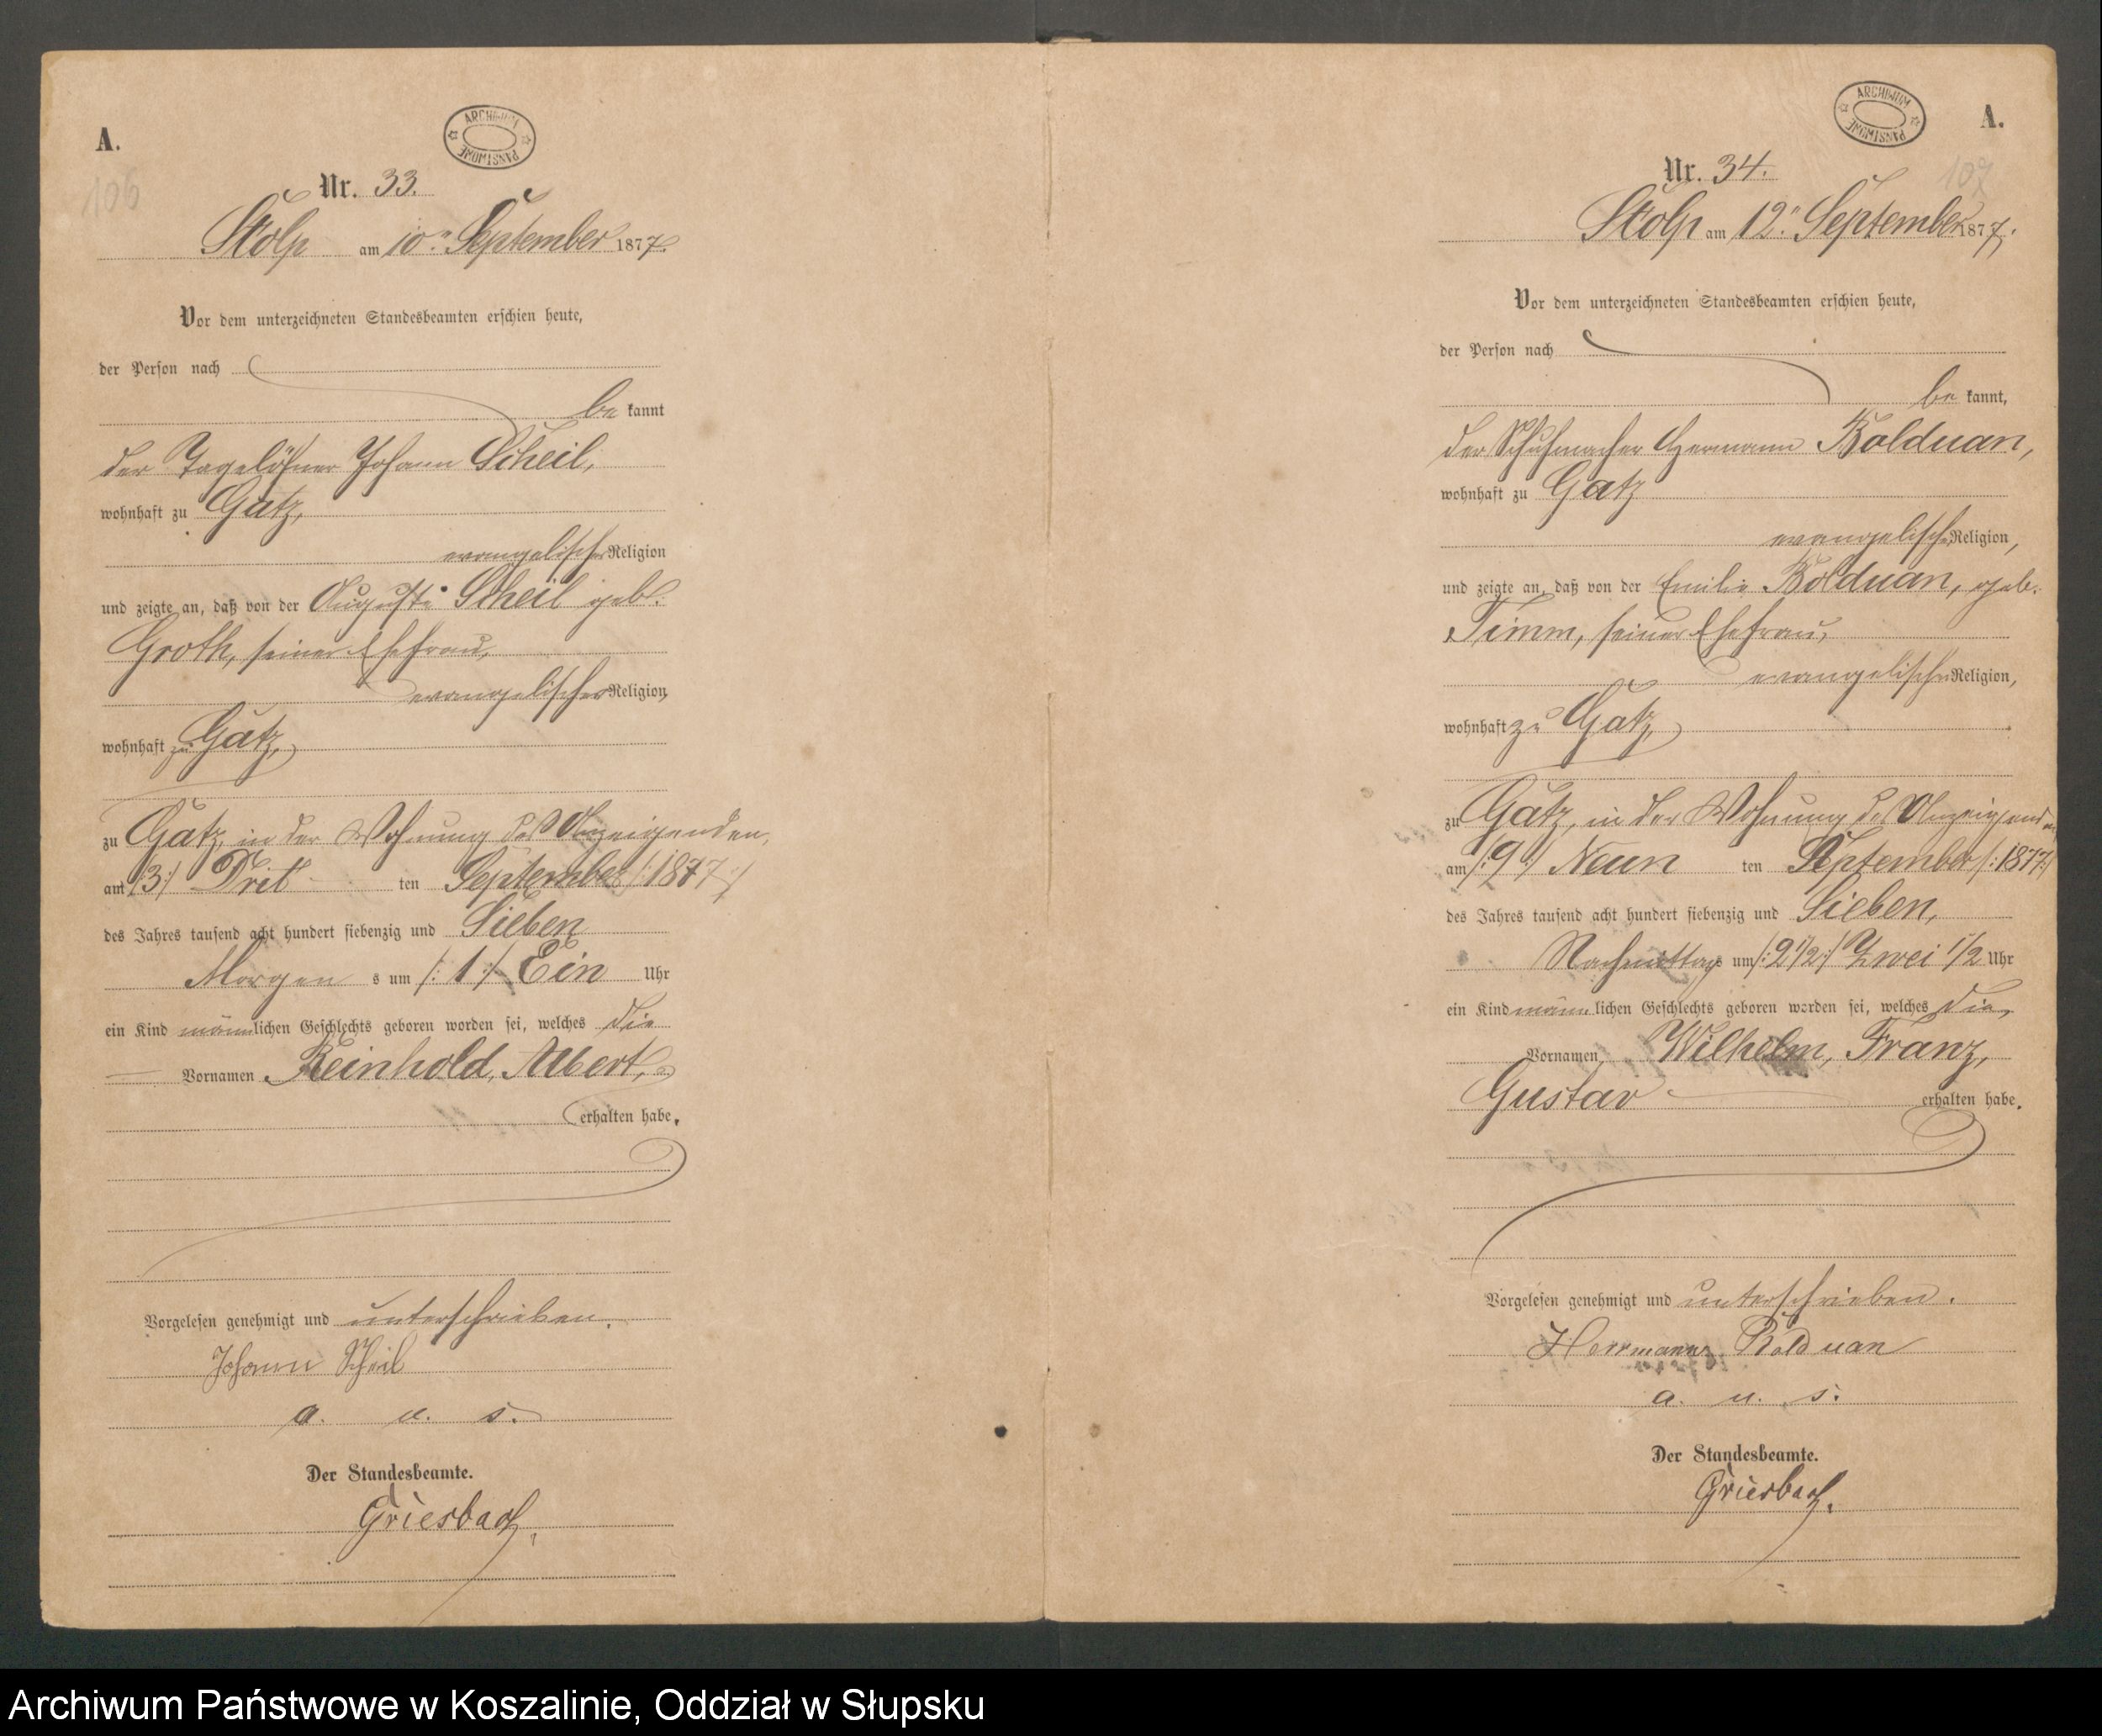 A.
ARCHIWUM PAŃSTWOWE
106
Nr. 33.
Stolp am 10ten September 1877.
Vor dem unterzeichneten Standesbeamten erschien heute,
der Person nach
be kannt
der Tagelöhner Johann Scheil,
wohnhaft zu Gatz,
evangelischer Religion
und zeigte an, daß von der Auguste Scheil geb.
Groth, seiner Ehefrau,
evangelischer Religion,
wohnhaft zu Gatz,
zu Gatz, in der Wohnung des Anzeigenden,
am /:3:/ Drit ten September /:1877:/
des Jahres tausend acht hundert siebenzig und Sieben
Morgen s um /:1:/ Ein Uhr
ein Kind männlichen Geschlechts geboren worden sei, welches die
Vornamen Reinhold, Albert,
erhalten habe.
Vorgelesen genehmigt und unterschrieben.
Johann Scheil
a. u. s.
Der Standesbeamte.
Griesbach.
ARCHIWUM PAŃSTWOWE
A.
107
Nr. 34.
Stolp am 12ten September 1877.
Vor dem unterzeichneten Standesbeamten erschien heute,
der Person nach
be kannt,
der Schuhmacher Hermann Bolduan,
wohnhaft zu Gatz
evangelischer Religion,
und zeigte an, daß von der Emilie Bolduan, geb.
Timm, seiner Ehefrau,
evangelischer Religion,
wohnhaft zu Gatz,
zu Gatz, in der Wohnung des Anzeigenden
am /:9:/ Neun ten September /:1877:/
des Jahres tausend acht hundert siebenzig und Sieben,
Nachmittags um /:2 1/2:/ Zwei 1/2 Uhr
ein Kind männlichen Geschlechts geboren worden sei, welches die,
Vornamen Wilhelm, Franz,
Gustav erhalten habe.
Vorgelesen genehmigt und unterschrieben.
Herrmann Bolduan
a. u. s.
Der Standesbeamte.
Griesbach.
Archiwum Państwowe w Koszalinie, Oddział w Słupsku